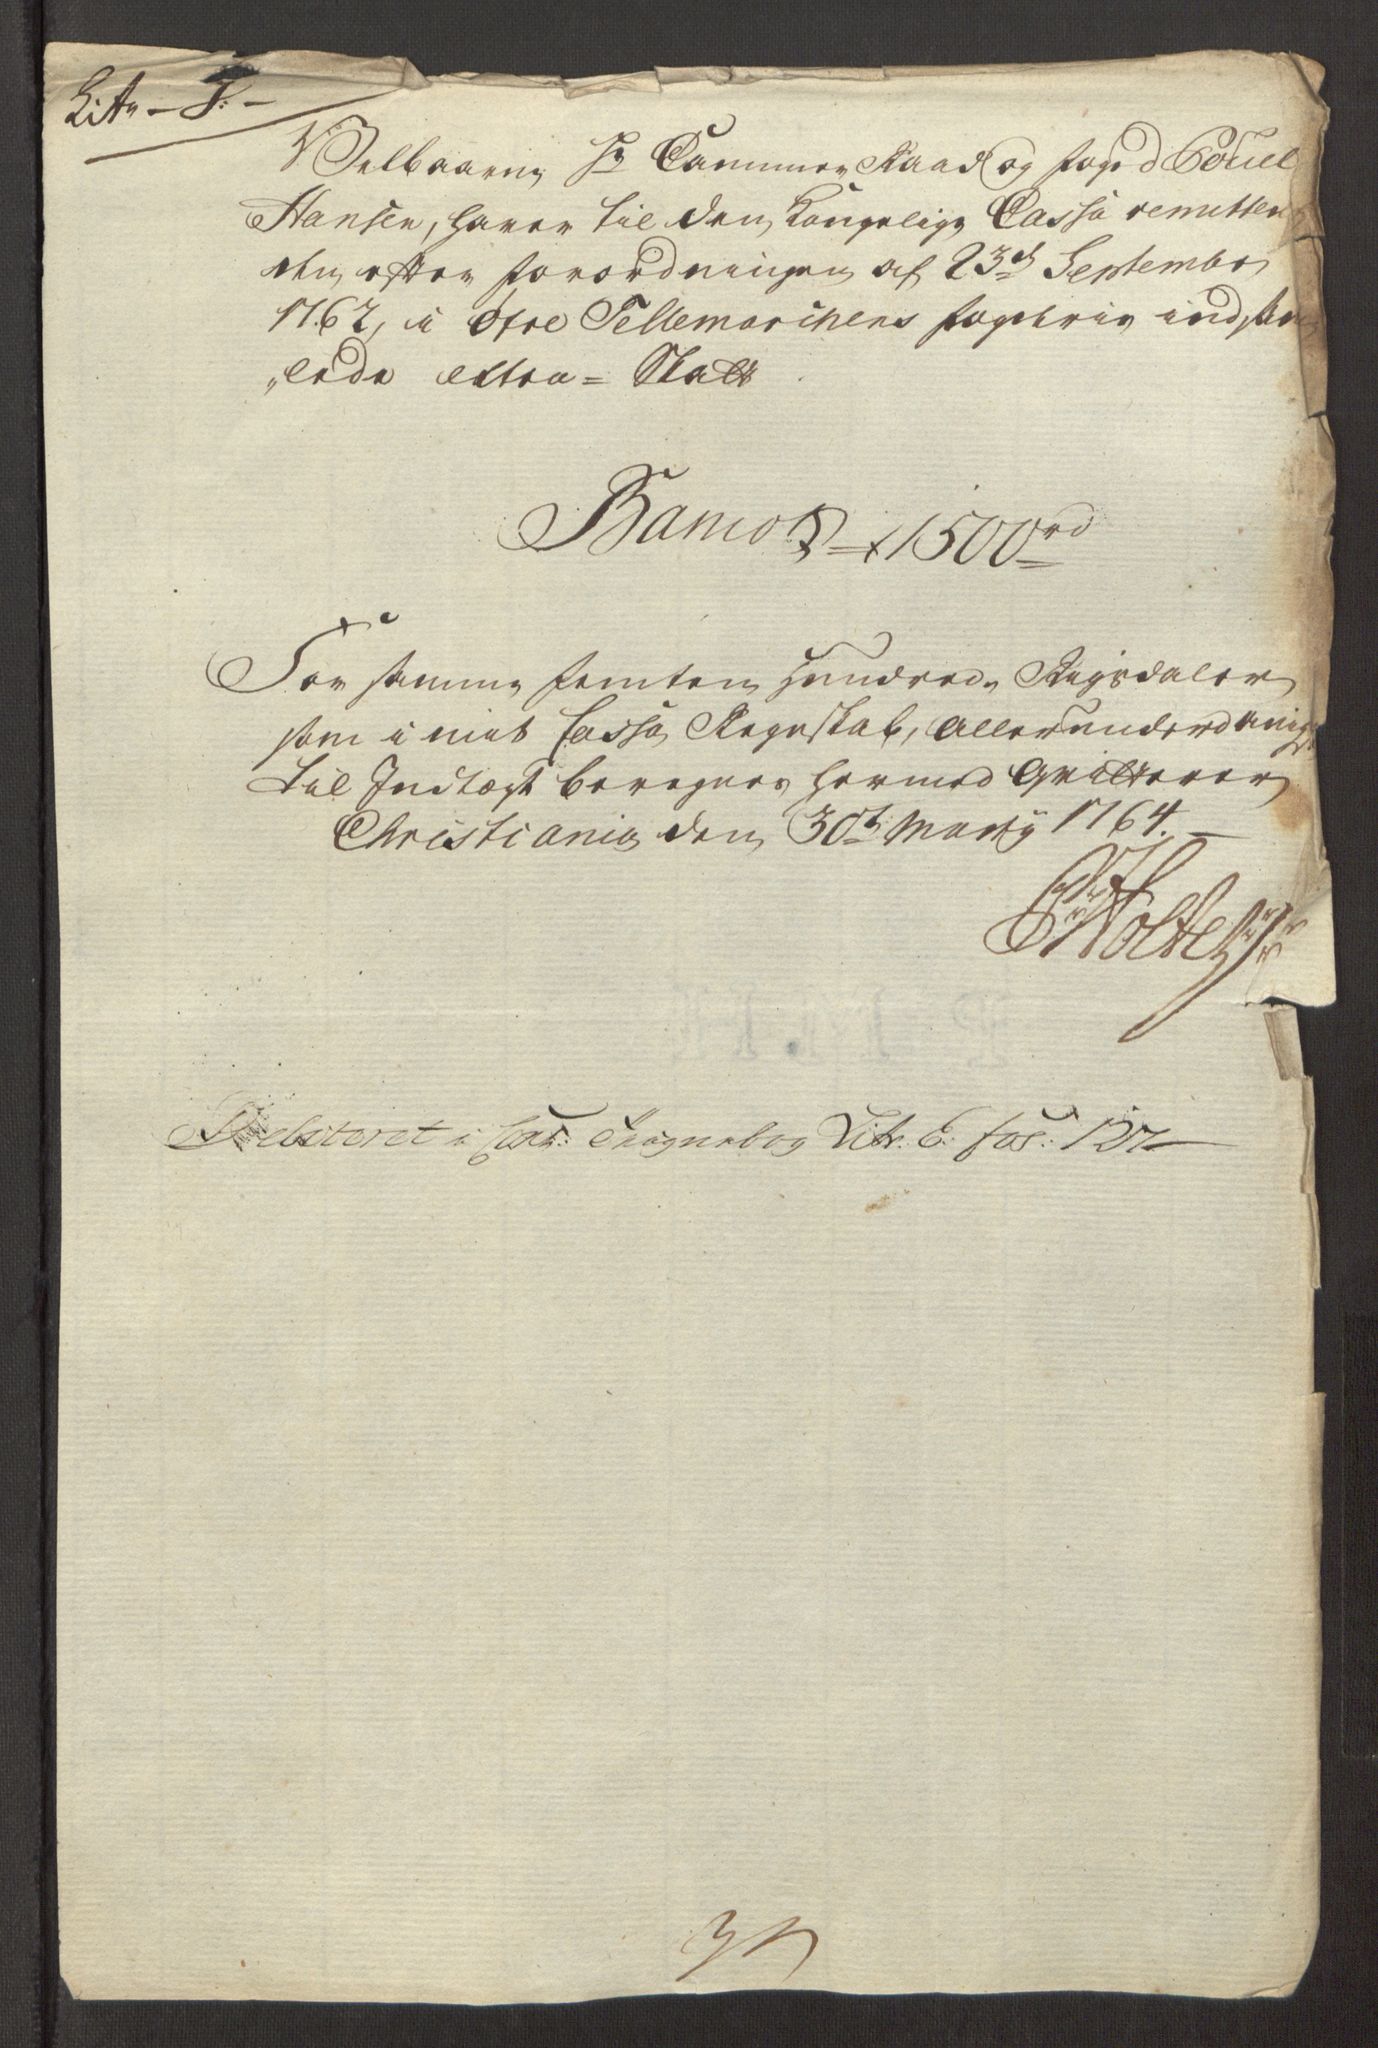 Litr – F: –
Velbaarne Hr Cammer Raad og foged Pouel
Hansen, haver til den Kongelige Cassa remitteret
den efter forordningen af 23d September
1762, i Øfre Tellemarchens fogderie indsam„
„lede extra = Skatt
Banco 1500rd
For samme femten Hundrede Rigsdaler
som i mit Cassa Regnskab, allerunderdanigst
til Indtægt beregnes hermed qvitterer
Christiania den 30te Martij 1764. –
Debiteret i Cass: Litr: E: fol: 127